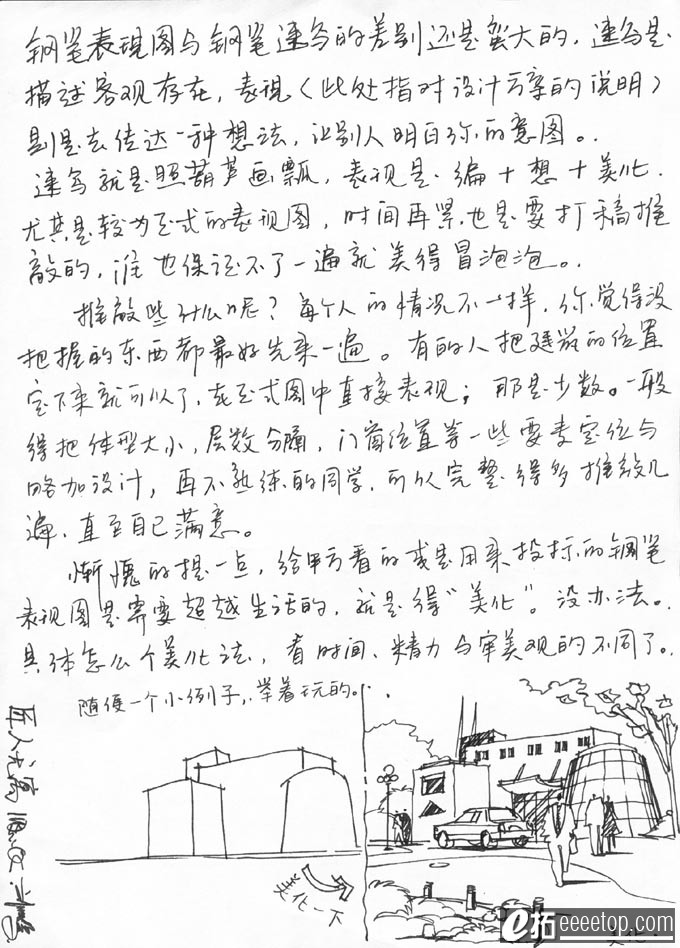 钢笔表现图与钢笔速写的差别还是蛮大的，速写是
描述客观存在，表现（此处指对设计方案的说明）
则是去传达一种想法，让别人明白你的意图。
速写就是照葫芦画瓢，表现是编＋想＋美化．
尤其是较为正式的表现图，时间再紧也是要打稿推
敲的，谁也保证不了一遍就美得冒泡泡。
推敲些什么呢？每个人的情况不一样，你觉得没
把握的东西都最好先来一遍。有的人把建筑的位置
定下来就可以了，在正式图中直接表现；那是少数。一般
得把体型大小，层数分隔，门窗位置等一些要素定位与
略加设计，再不熟练的同学，可以完整得多推敲几
遍，直至自己满意。
惭愧的提一点，给甲方看的或是用来投标的钢笔
表现图是需要超越生活的，就是得“美化”。没办法。
具体怎么个美化法，看时间、精力与审美观的不同了。
随便一个小例子，举着玩的。
美化一下
e拓 eeeetop.com